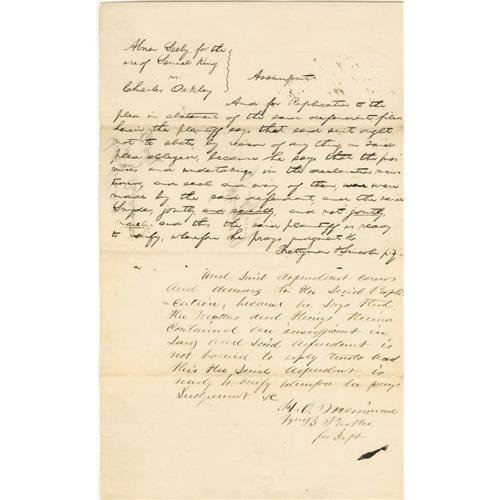 Abner Seely, for the
use of Samuel King
vs
Charles Oakley
Assumpsit
And for Replication to the
plea in abatement of the said defendant, filed
herein the plaintiff says that said suit ought
not to abate, by reason of any thing in said
plea alleged, because he says that the pro-
mises and undertakings, in the declaration men-
tioned, and each and every of them, were
made by the said defendant, and the said
Snyder, jointly and severally, and not jointly,
and this the said plaintiff is ready
to verify, wherefore he prays judgment &c
Prettyman & Lincoln p.q.
And said defendant comes
and demurs to the said Repli-
=cation, because he says that
the matters and things therein
contained are insufficient in
Law and said defendant is
not bound to reply thereto and
this the said defendant is
ready to verify wherefore he prays
Judgement &c
H. O. Merriman
B Parker
for Deft